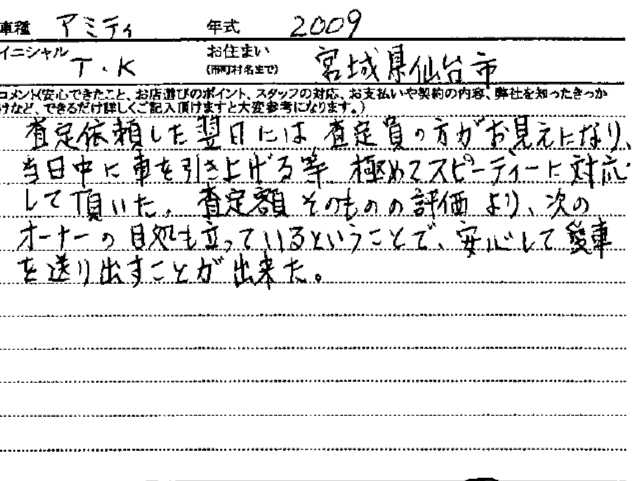 車種 アミティ 年式 2009
イニシャル T.K お住まい(市町村名まで) 宮城県仙台市
コメント(安心できたこと、お店選びのポイント、スタッフの対応、お支払いや契約の内容、弊社を知ったきっか
けなど、できるだけ詳しくご記入頂けますと大変参考になります。)
査定依頼した翌日には、査定員の方がお見えになり、
当日中に車を引き上げる等、極めてスピーディーに対応
して頂いた。査定額そのものの評価より、次の
オーナーの目処も立っているということで、安心して愛車
を送り出すことが出来た。